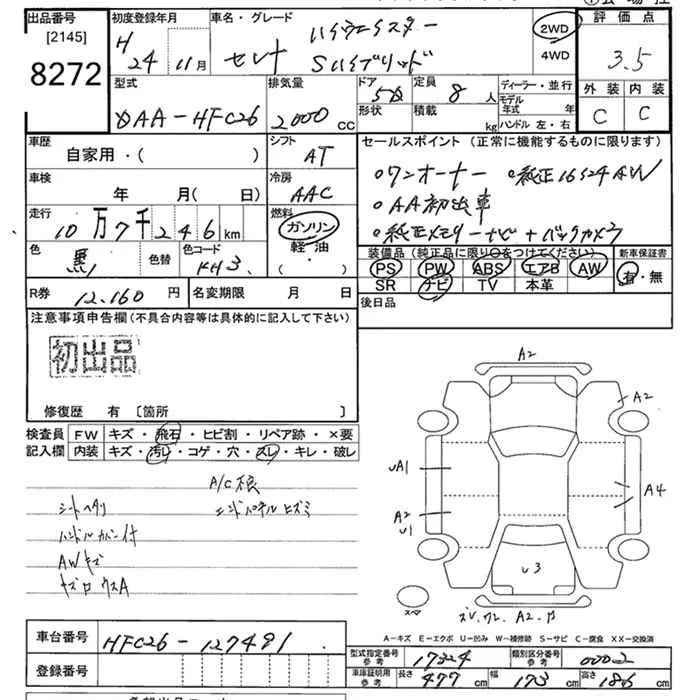 出品番号 [2145] 8272
初度登録年月 H 24年 11月
車名・グレード セレナ ハイウェイスター Sハイブリッド
2WD 4WD
評価点 3.5
外装 内装
C C
型式 DAA-HFC26
排気量 2000 CC
ドア 5D 形状
定員 8人 積載 kg
ディーラー・並行
モデル年式 年
ハンドル 左・右
車歴 自家用・( )
シフト AT
セールスポイント (正常に機能するものに限ります)
○ワンオーナー ○純正16インチAW
○AA初出車
○純正メモリーナビ+バックカメラ
車検 年 月( 日)
冷房 AAC
走行 10万7千246km
燃料 ガソリン 軽油・
色 黒 色替 色コード KH3
装備品 (純正品に限り○をつけてください) 新車保証書
PS PW ABS エアB AW 有・無
SR ナビ TV 本革
R券 12,160円 名変期限 月 日
後日品
注意事項申告欄(不具合内容等は具体的に記入して下さい)
初出品
修復歴 有 [箇所 ]
検査員 FW キズ・飛石・ヒビ割・リペア跡・×要
記入欄 内装 キズ・汚レ・コゲ・穴・スレ・キレ・破レ
シートヘタリ
ハンドルカバー付
AWキズ
A2
A2
UA1
A2
U1
A4
U3
スペア
A-キズ E-エクボ U-凹み W-補修跡 S-サビ C-腐食 XX-交換済
車台番号 HFC26-127491
登録番号
型式指定番号 参考 17324 類別区分番号 参考 0002
車庫証明用 参考 長さ 477cm 幅 173cm 高さ 186cm